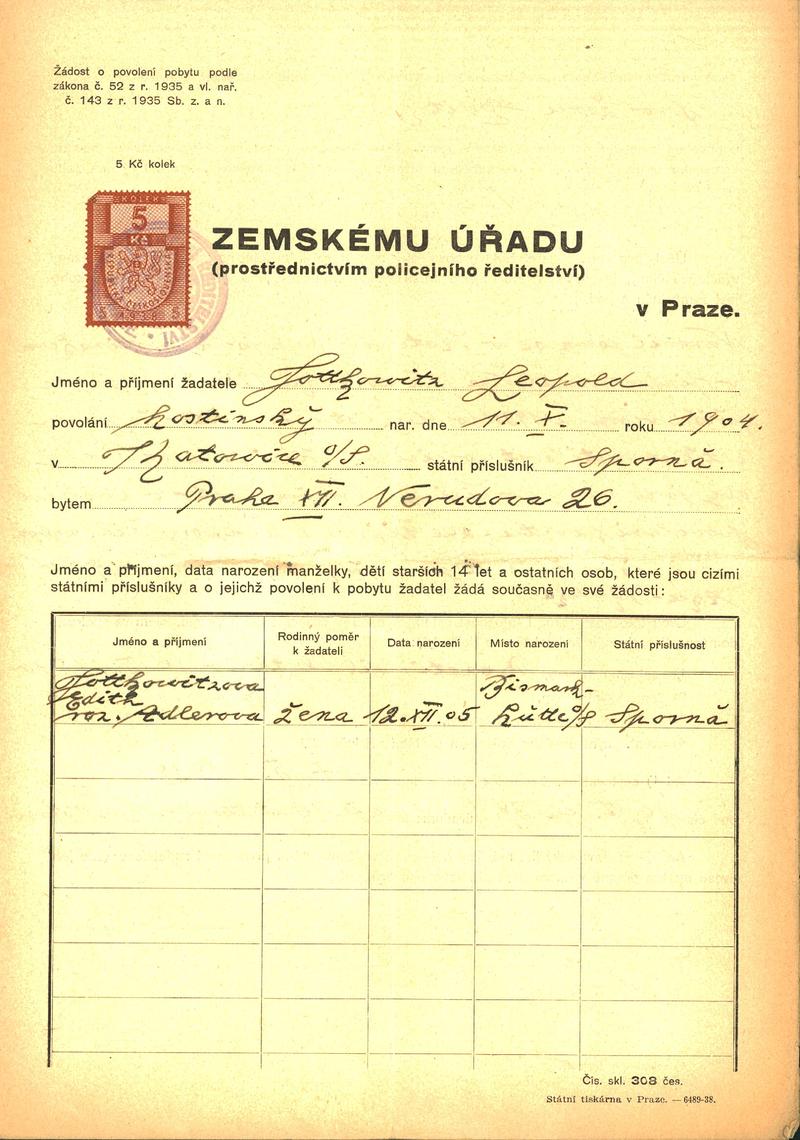 Žádost o povolení pobytu podle
zákona č. 52 z r. 1935 a vl. nař.
č. 143 z r. 1935 Sb. z. a n.
5 Kč kolek
KOLEK
5
Kč
ZEMSKÉMU ÚŘADU
(prostřednictvím policejního ředitelství)
v Praze.
Jméno a příjmení žadatele Gottkowitz Leopold
povolání hostinský nar. dne 11. X. roku 1904.
v Katowice o/S. státní příslušník Sporná.
bytem Praha XII. Nerudova 26.
Jméno a příjmení, data narození manželky, dětí starších 14 let a ostatních osob, které jsou cizími
státními příslušníky a o jejichž povolení k pobytu žadatel žádá současně ve své žádosti:
Jméno a příjmení Rodinný poměr k žadateli Data narození Místo narození Státní příslušnost
Gottkowitzova Bismark-
Edith
roz. Adlerova žena 12.XII.05 hütte o/S Sporná
Čís. skl. 308 čes.
Státní tiskárna v Praze. — 6489-38.